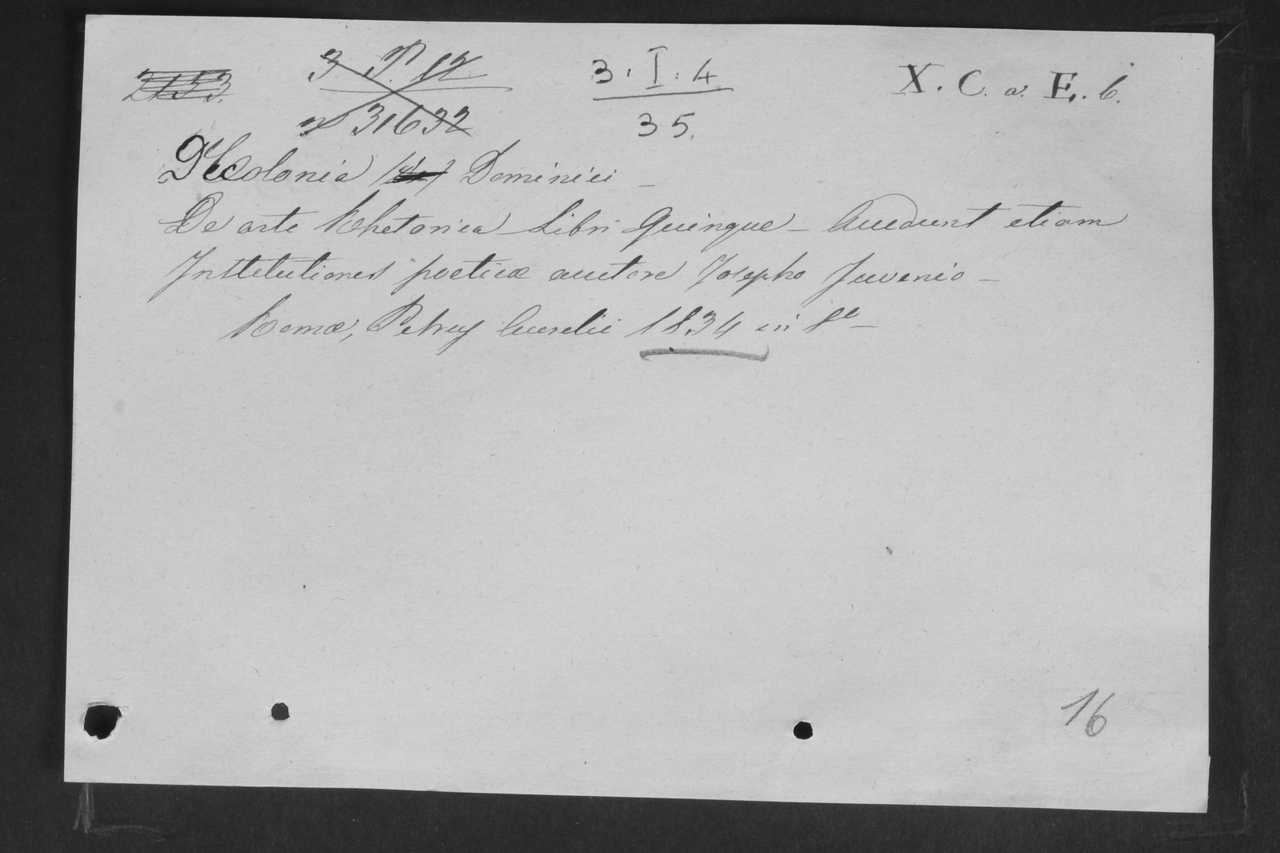 2133.
3 P. 12
n° 31632
3. I. 4
35.
X. C. a. E. 6.
De Colonia Dominici _
De arte Rhetorica Libri Quinque _ Accedunt etiam
Institutiones poeticæ auctore Josepho Juvencio _
Romæ, Petrus Aurelii 1834 in 8° _
16